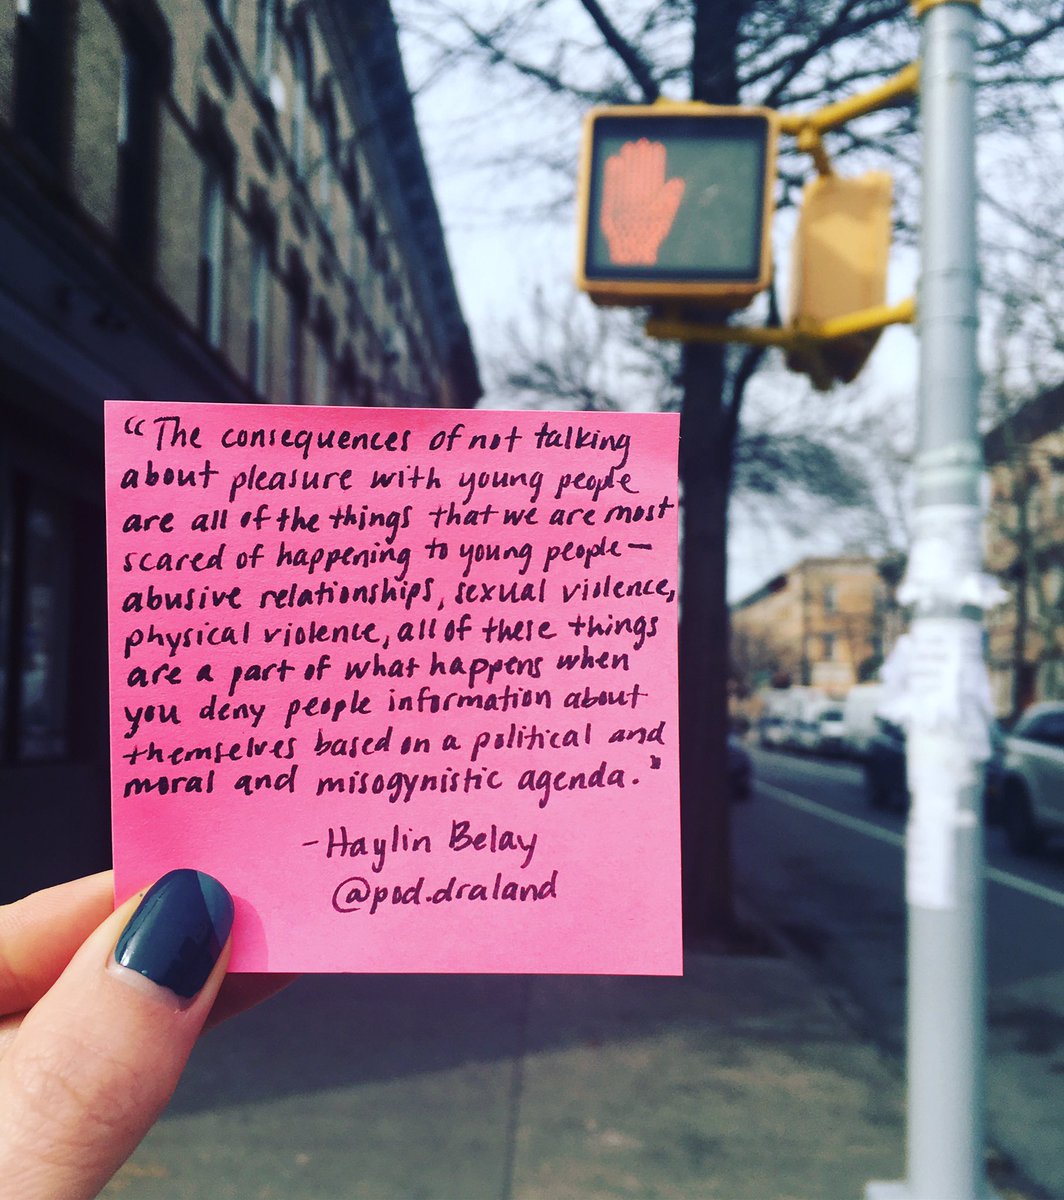 “The consequences of not talking
about pleasure with young people
are all of the things that we are most
scared of happening to young people—
abusive relationships, sexual violence,
physical violence, all of these things
are a part of what happens when
you deny people information about
themselves based on a political and
moral and misogynistic agenda."
-Haylin Belay
@pod.draland